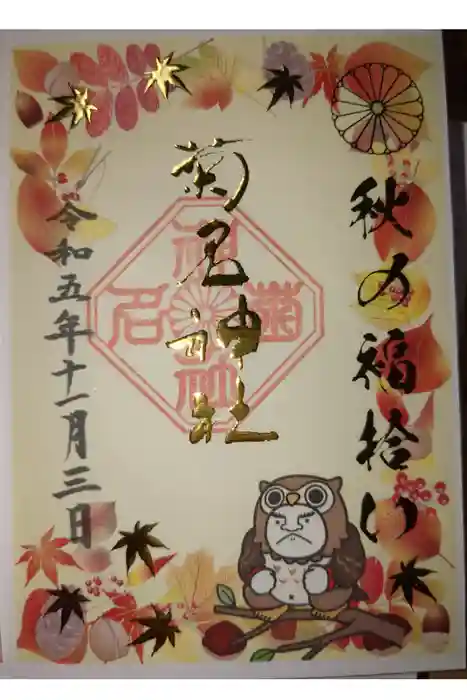 秋の福拾い
菊名神社
菊名神社
令和五年十一月三日